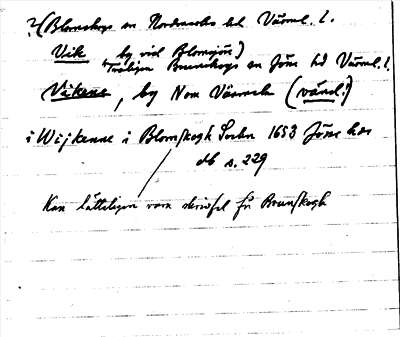 ?(Blomskogs sn Nordmarks hd. Värml. l.
Vik by vid Blomsjön)
Troligen Brunskogs sn Jösse hd Värml. l.
Vikene, by Nom Värmsk (värml!)
i Wijkenne i Blomskogh Sochn 1653 Jösse hdr
db s. 229
Kan lätteligen vara skrivfel för Brunskogh